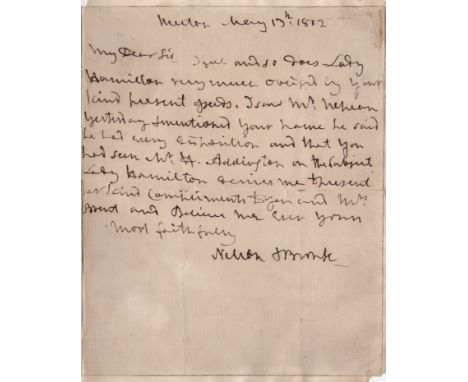 Merton May 13th. 1802
My Dear Sir I feel and so does Lady
Hamilton very much obliged by your
kind present. I saw Mr. Nepean
yesterday & mentioned your name he said
he had every disposition and that you
had seen Mr. H. Addington on the Subject
Lady Hamilton desires me to present
her kind Compliments to you and Mrs.
and Believe me Ever Yours
Most faithfully
Nelson & Bronte